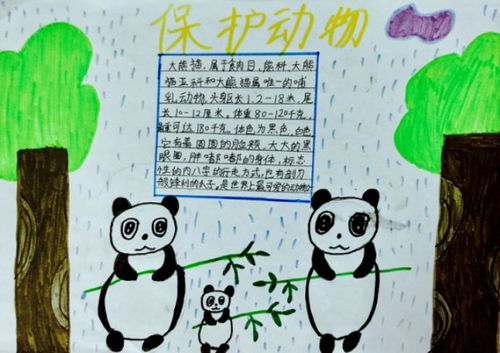 保护动物
大熊猫,属于食肉目、熊科、大熊
猫亚科和大熊猫属唯一的哺
乳动物,头躯长1.2-1.8米,尾
长10-12厘米,体重80-120千克,
最重可达180千克,体色为黑色、白色
它有着圆圆的脸颊,大大的黑
眼圈,胖嘟嘟的身体,标志
性的内八字的行走方式,也有剖刀
般锋利的爪子,是世界上最可爱的动物